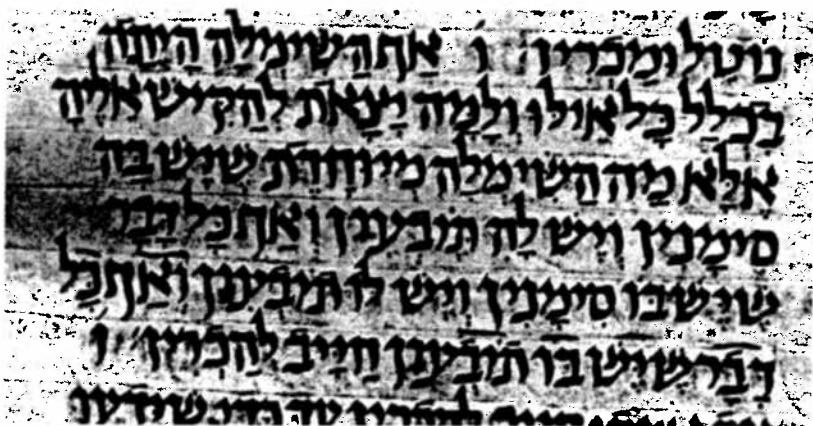 נוטל ומכריז ׃ ו אַף הַשִימְלָה הָיְתָה
בִכְלַל כָל אֵילּוּ וְלָמָה יָצָאת לְהַקִּישׁ אֵלֶיהָ
אֶלָּא מַה הַשִּימְלָה מְיוּחֶדֶת שֶׁיֵּשׁ בָּהּ
סִימָנִין וְיֵשׁ לָהּ תּוֹבְעִין וְאַף כָּל דָּבָר
שֶׁיֵּשׁ בּוֹ סִימָנִין וְיֵשׁ לוֹ תּוֹבְעִין וְאַף כָּל
דָּבָר שֶׁיֵּשׁ בּוֹ תּוֹבְעִין חַיָּיב לְהַכְרִיז ׃ ו